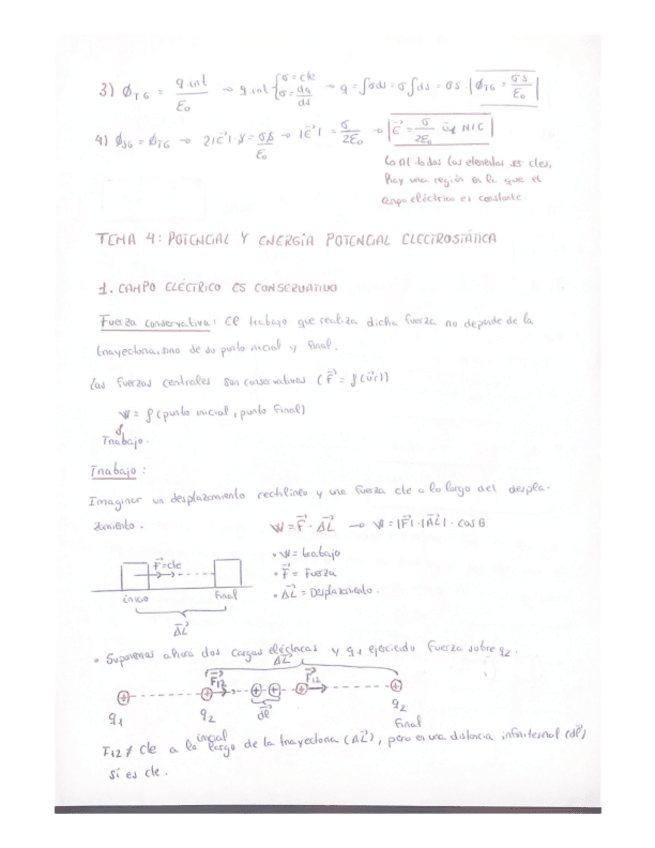 3) Φ_TG = q.int / ε₀ → q.int { σ = cte σ = dq/ds → q = ∫σds = σ∫ds = σs. | Φ_TG = σs/ε₀ |
4) Φ_SG = Φ_TG → 2|E⃗|·s = σs/ε₀ → |E⃗| = σ/2ε₀ → | E⃗ = σ/2ε₀ N/C |
todos los elementos es ctes,
Hay una región en la que el
campo eléctrico es constante.
TEMA 4: POTENCIAL Y ENERGÍA POTENCIAL ELECTROSTÁTICA
1. CAMPO ELÉCTRICO ES CONSERVATIVO
Fuerza conservativa: El trabajo que realiza dicha fuerza no depende de la
trayectoria, sino de su punto inicial y final.
Las fuerzas centrales son conservativas (F⃗ = f(u⃗r))
W = f(punto inicial, punto final)
Trabajo.
Trabajo:
Imaginar un desplazamiento rectilíneo y una fuerza cte a lo largo del despla-
zamiento. W = F⃗ · ΔL⃗ → W = |F⃗|·|ΔL⃗|·cos θ
F⃗ = cte
inicio final
ΔL⃗
• W = trabajo
• F⃗ = Fuerza
• ΔL⃗ = Desplazamiento.
• Suponemos ahora dos cargas eléctricas y q1 ejerciendo fuerza sobre q2.
ΔL⃗
F⃗12 F⃗12
q1 q2 dl⃗ q2
inicial Final
F12 ≠ cte a lo largo de la trayectoria (ΔL⃗), pero en una distancia infinitesimal (dl⃗)
sí es cte.